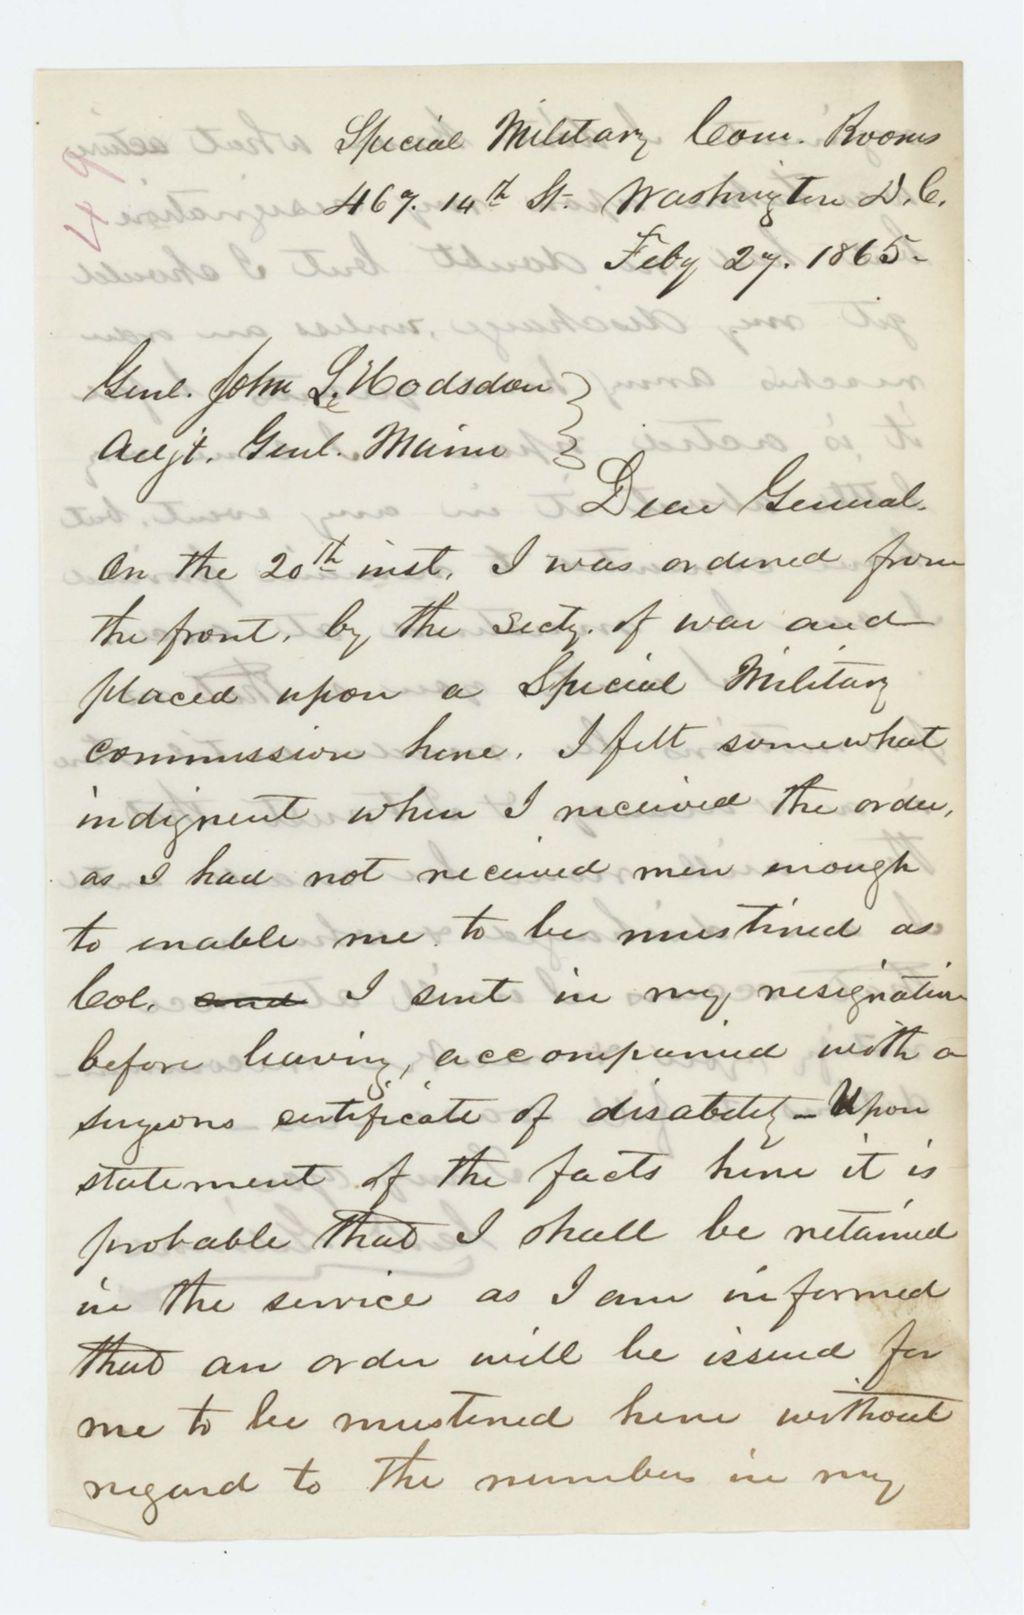 Special Military Com. Rooms
467. 14th St. Washington D.C.
Feby 27. 1865.
Genl. John L. Hodsdon
Adjt. Genl. Maine
Dear General.
On the 20th inst, I was ordered from
the front, by the Secty. of war and
placed upon a Special Military
commission here. I felt somewhat
indignent when I received the order,
as I had not received men enough
to enable me to be mustered as
Col. and I sent in my resignation
before leaving, accompanied with a
surgeons certificate of disability - Upon
statement of the facts here it is
probable that I shall be retained
in the service as I am informed
that an order will be issued for
me to be mustered here without
regard to the numbers in my